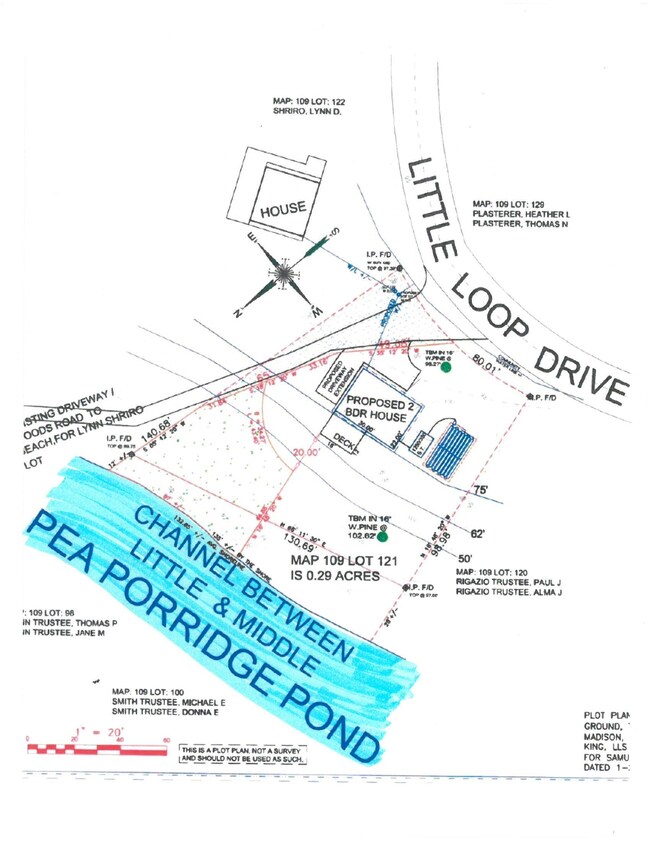 MAP: 109 LOT: 122
SHRIRO, LYNN D.
HOUSE
LITTLE LOOP DRIVE
MAP: 109 LOT: 129
PLASTERER, HEATHER L
PLASTERER, THOMAS N
S.
E
W
N
I.P. F/D
TBM IN 16'
W.PINE @
80.01'
I.P. F/D
33.16'
PROPOSED
DRIVEWAY
EXTENSION
PROPOSED 2
BDR HOUSE
DECK
20.00'
STING DRIVEWAY /
OODS ROAD TO
EACH,FOR LYNN SHRIRO
LOT
I.P. F/D
140.68'
75'
62'
50'
TBM IN 16'
W.PINE @
102.62'
130.69'
98.98'
MAP 109 LOT 121
IS 0.29 ACRES
I.P. F/D
MAP: 109 LOT: 120
RIGAZIO TRUSTEE, PAUL J
RIGAZIO TRUSTEE, ALMA J
CHANNEL BETWEEN
LITTLE & MIDDLE
PEA PORRIDGE POND
: 109 LOT: 96
N TRUSTEE, THOMAS P
N TRUSTEE, JANE M
MAP: 109 LOT: 100
SMITH TRUSTEE, MICHAEL E
SMITH TRUSTEE, DONNA E
1" = 20'
0 20 40 80
THIS IS A PLOT PLAN, NOT A SURVEY
AND SHOULD NOT BE USED AS SUCH.
PLOT PLAN
GROUND,
MADISON,
KING, LLS
FOR SAMU
DATED 1-